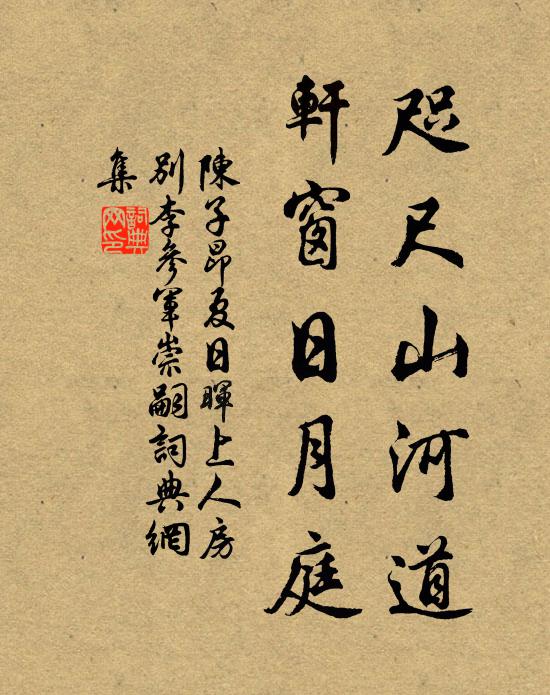 咫尺山河道
軒窗日月庭
陳子昂夏日暉上人房
別李參軍崇嗣詞典網
集
詞典網印